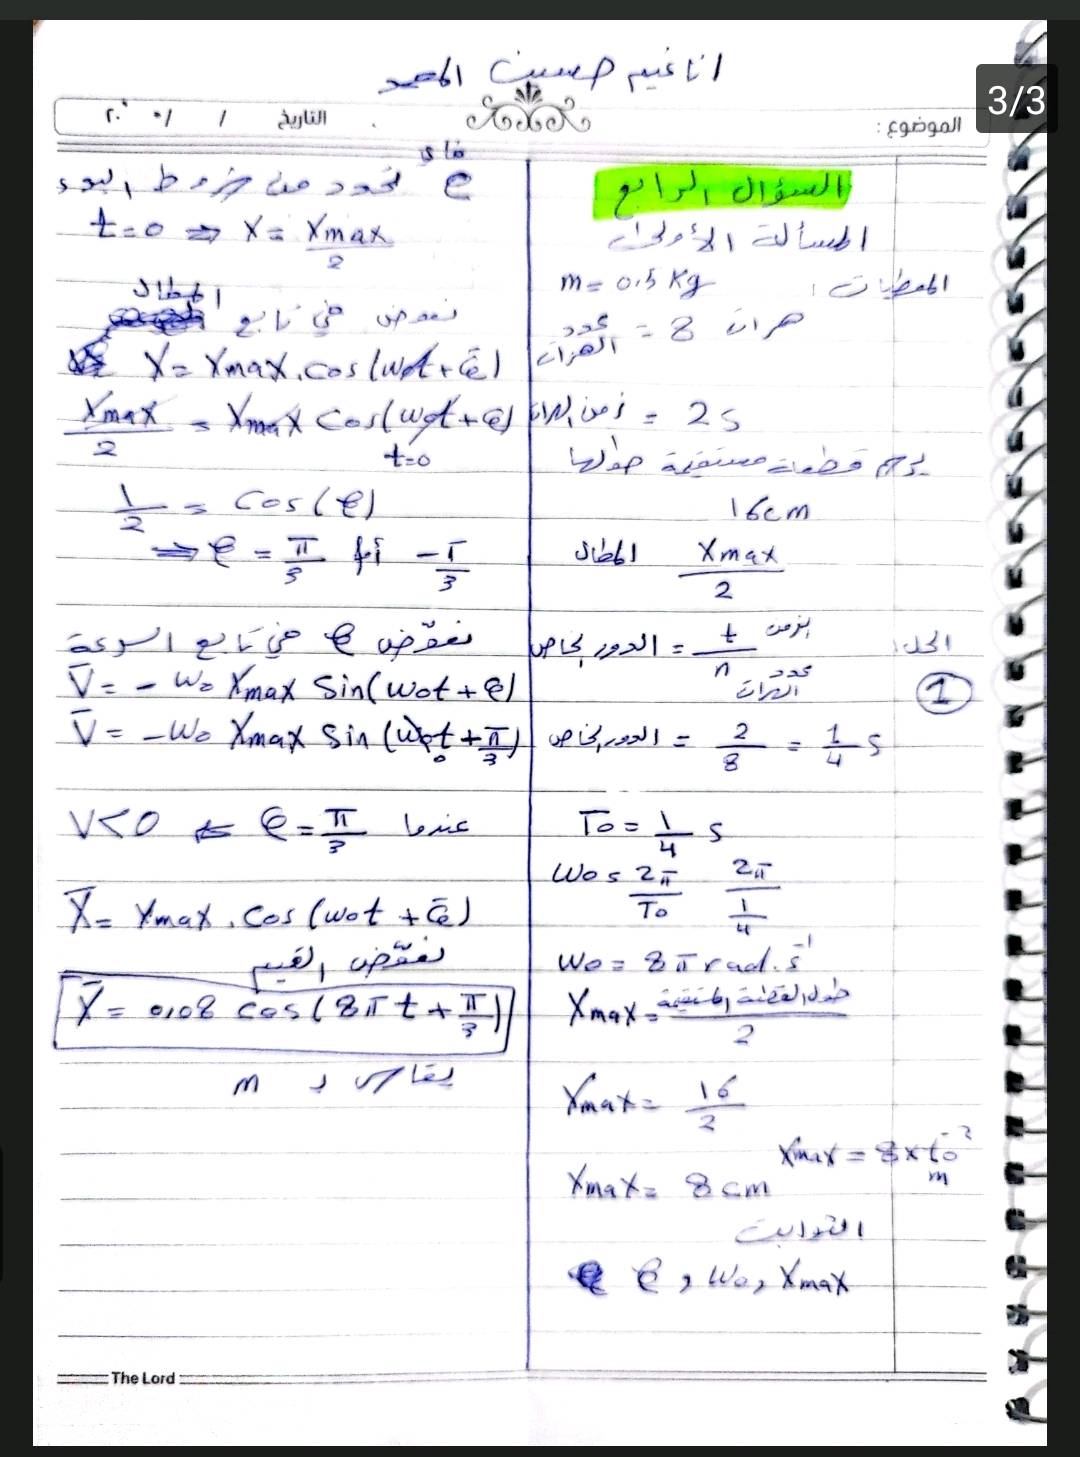 3/3
انا غيم حسين المحمد
الموضوع :
التاريخ / / ٢٠
السؤال الرابع
المسألة الأولى :
المعطيات :
m = 0.5 Kg
هزات 8 = عدد الهزات
زمن الهزات = 2 s
يرسم قطعة مستقيمة طولها
16 cm
المطال Xmax/2
الحل :
①
الدور الخاص = t/n الزمن / عدد الهزات
الدور الخاص = 2/8 = 1/4 s
To = 1/4 s
wo = 2π/To 2π/(1/4)
wo = 8π rad.s⁻¹
Xmax = طول القطعة المستقيمة / 2
Xmax = 16/2
Xmax = 8 cm Xmax = 8×10⁻² m
الثوابت
φ , wo, Xmax
φ نحدد من شروط البدء
t=0 ⇒ X = Xmax/2
نعوض في تابع المطال
X = Xmax.cos(wot + φ̄)
Xmax/2 = Xmax cos(wot + φ)
t=0
1/2 = cos(φ)
⇒ φ = π/3 أو -π/3
نعوّض φ في تابع السرعة
V̄ = - wo Xmax Sin(wot + φ)
V̄ = - wo Xmax Sin(wot + π/3)
0
عندما φ = π/3 ⇐ V<0
X̄ = Xmax.cos(wot + φ̄)
نعوّض القيم
X̄ = 0,08 cos(8π t + π/3)
m
The Lord